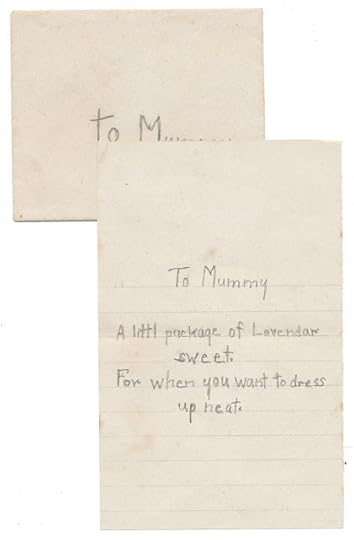 To Mummy
To Mummy
A littl package of Lavendar
sweet.
For when you want to dress
up neat.